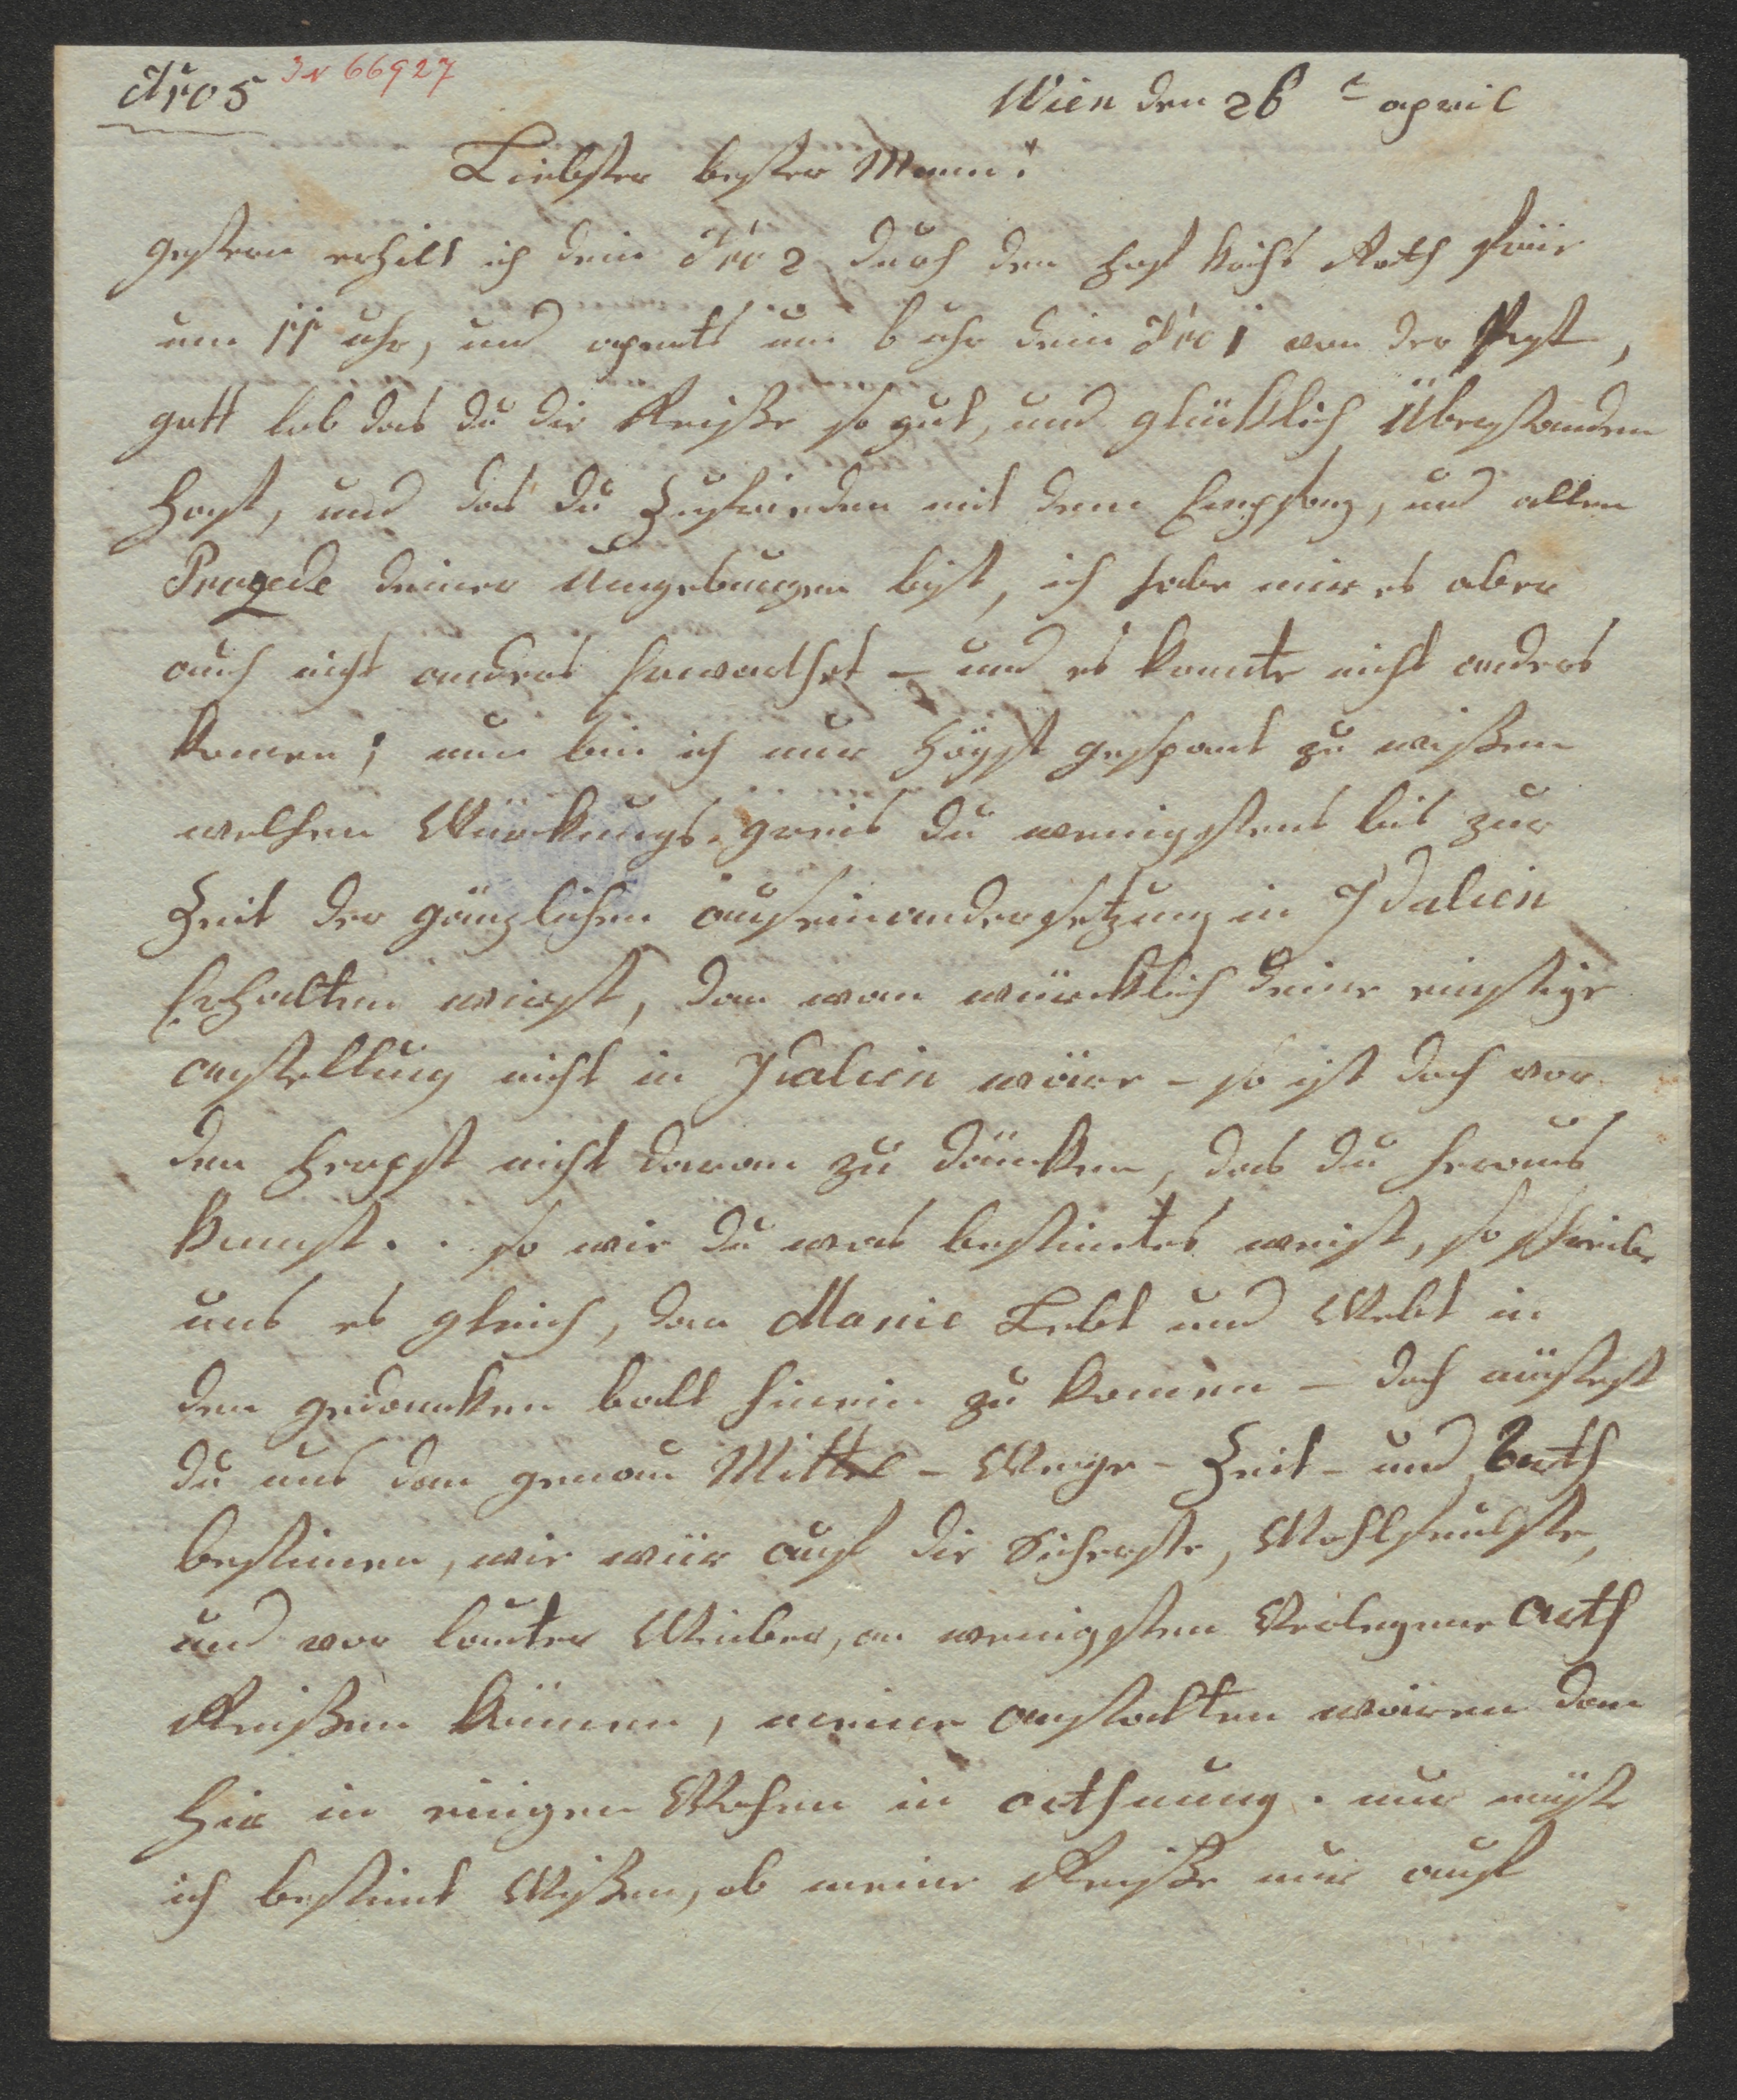 Nro 5 IN 66927
Wien den 26 t april
Liebster bester Mann!
gestern erhilt ich dein Nro 2 durch den Hof Krichs Rath früe
um 11 uhr, und apents um 6 uhr dein Nro 1 von der Post,
gott lob das du die Reiße so gut, und glüklich Überstanden
Hast, und das du Zufrieden mit dem Empfang, und allen
Prozede deiner Umgebungen bist, ich habe mir es aber
auch nicht anders Erwarthet – und es konnte nicht anders
komen; nun bin ich nur Högst gespant zu wißen
welchen Würkungs-greis du wenigstens bis zur
Zeit der gänzlichen auseinandersetzung in Idalien
Erhalten wirst, dan wan würcklich deine einstige
anstellung nicht in Italien wäre – so ist doch vor
den Herpst nicht daran zu däncken, das du heraus
kumst.. so wie du was bestimtes weist, so schreibe
uns es gleich, dan Marie Lebt und Webt in
den gedancken balt hinein zu komen – doch müstest
du uns dan genau Mittel – Wege – Zeit – und Orth
bestimen, wie wür auf die Sicherste, Wohlfeulste,
und vor lauter Weiber, am wenigsten Verlegene arth
Reißen können, meine anstalten wären dan
Hier in einigen Wochen in orthnung. nur müste
ich bestimt Wißen, ob meine Reiße nur auf